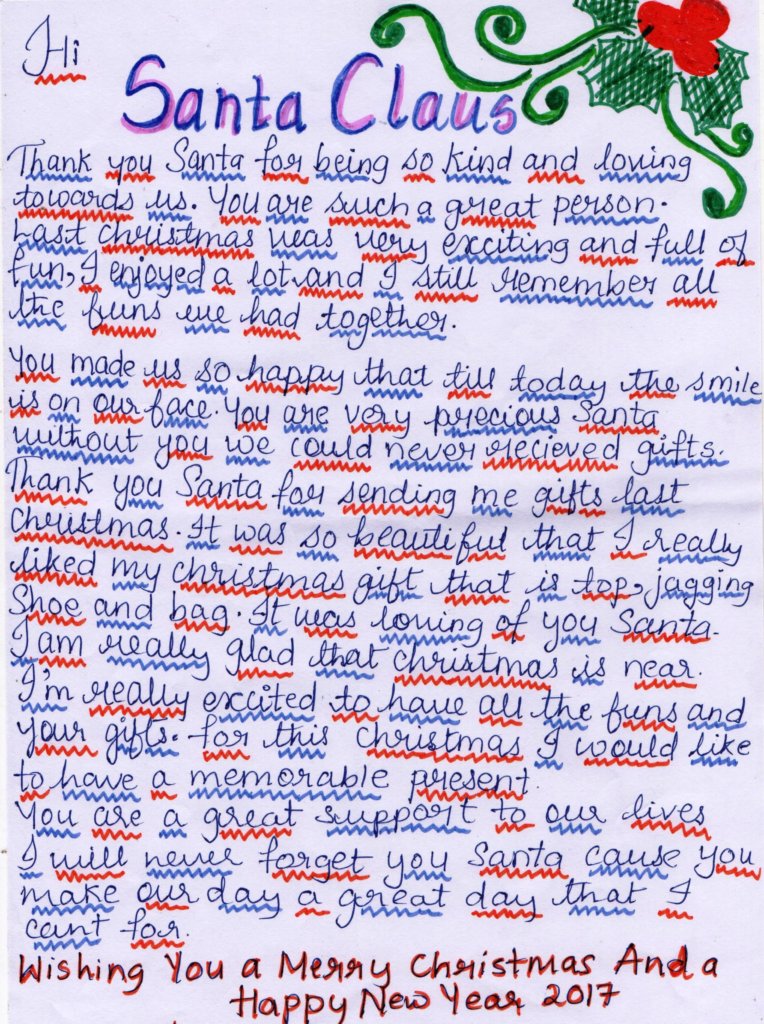 Hi
Santa Claus
Thank you Santa for being so kind and loving
towards us. You are such a great person.
Last christmas was very exciting and full of
fun, I enjoyed a lot and I still remember all
the funs we had together.
You made us so happy that till today the smile
is on our face. You are very precious Santa
without you we could never recieved gifts.
Thank you Santa for sending me gifts last
christmas. It was so beautiful that I really
liked my christmas gift that is top, jagging
Shoe and bag. It was loving of you Santa.
I am really glad that christmas is near.
I'm really excited to have all the funs and
your gifts. for this Christmas I would like
to have a memorable present.
You are a great support to our lives
I will never forget you Santa cause you
make our day a great day that I
cant for.
Wishing You a Merry Christmas And a
Happy New Year 2017